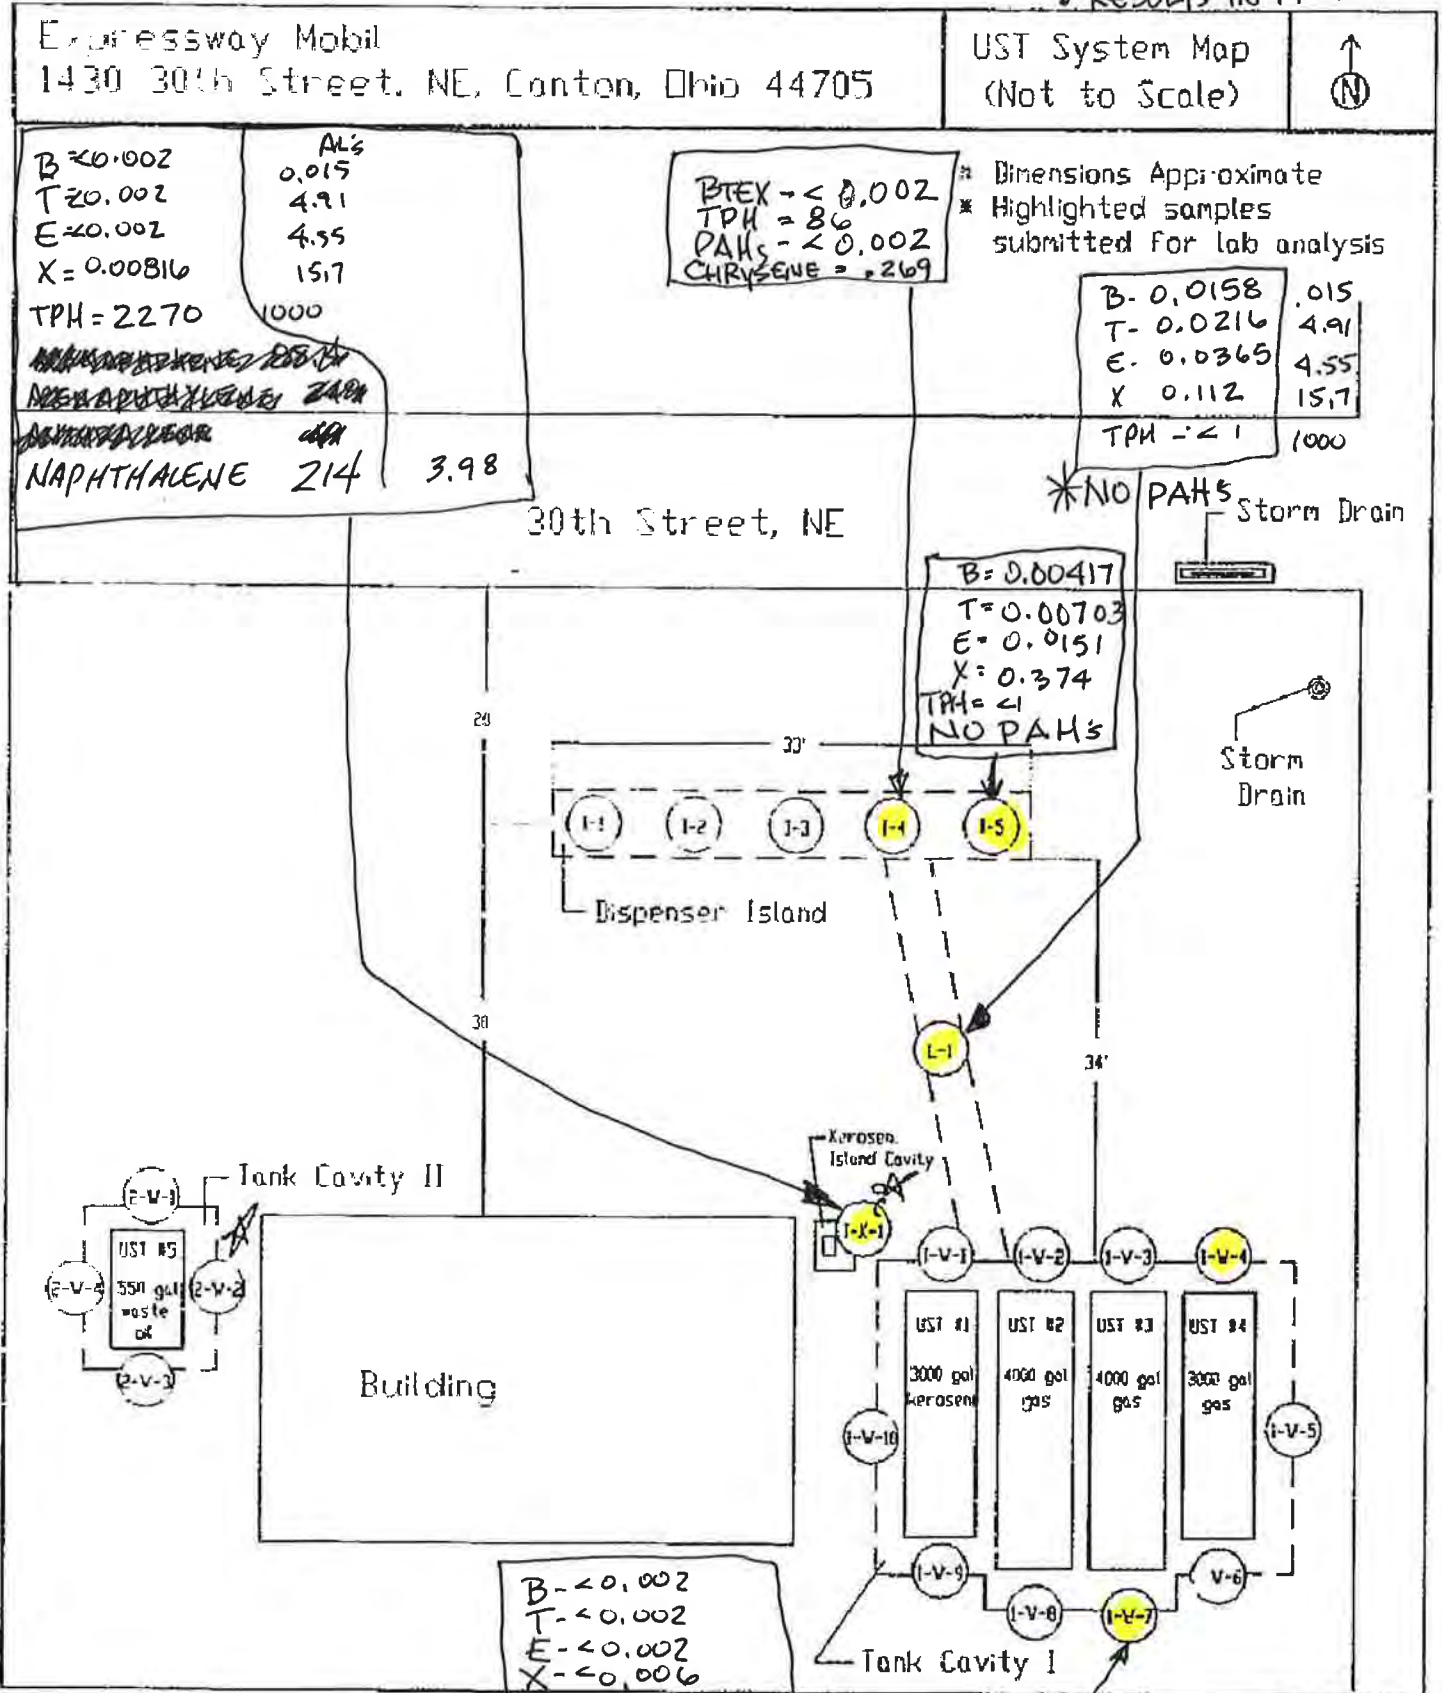 Expressway Mobil
1430 30th Street, NE, Canton, Ohio 44705
UST System Map
(Not to Scale)
N
B = <0.002
T = <0.002
E = <0.002
X = 0.00816
TPH = 2270
NAPHTHALENE 214
AL's
0.015
4.91
4.55
15.7
1000
3.98
BTEX - < 0.002
TPH = 86
PAHs - < 0.002
CHRYSENE = .269
* Dimensions Approximate
* Highlighted samples
submitted for lab analysis
B - 0.0158 .015
T - 0.0216 4.91
E - 0.0365 4.55
X 0.112 15.7
TPH - < 1 1000
* NO PAHs
Storm Drain
30th Street, NE
B = 0.00417
T = 0.00703
E = 0.0151
X = 0.374
TPH = <1
NO PAH's
Storm
Drain
33'
I-1
I-2
I-3
I-4
I-5
Dispenser Island
L-1
34'
Island Cavity
Tank Cavity II
UST #5
550 gal
waste
oil
2-W-2
2-W-3
Building
1-W-1
1-W-2
1-W-3
1-W-4
UST #1
3000 gal
kerosene
UST #2
4000 gal
gas
UST #3
4000 gal
gas
UST #4
3000 gal
gas
1-W-10
1-W-5
1-W-9
1-W-8
1-W-7
W-6
Tank Cavity I
B - <0.002
T - <0.002
E - <0.002
X - <0.006